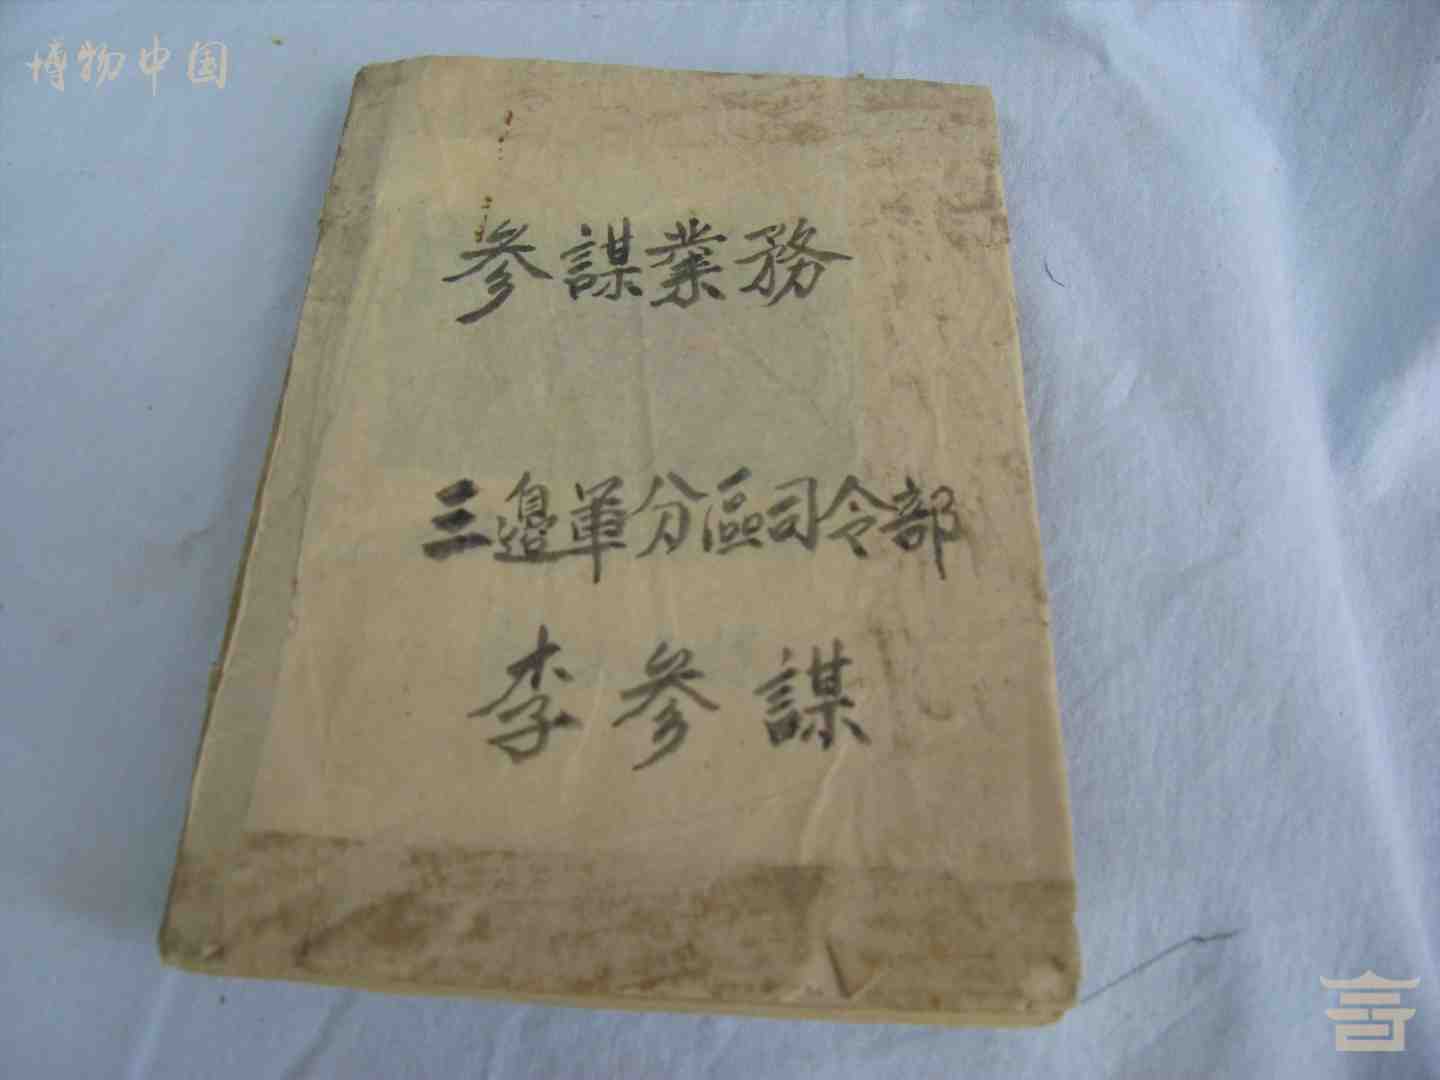 博物中国
参謀業務
三邊軍分區司令部
李参謀